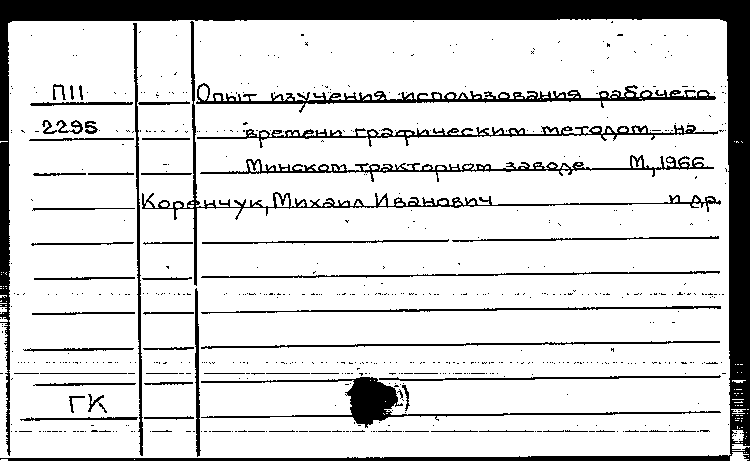 П11 Опыт изучения использования рабочего
2295 времени графическим методом, на
Минском тракторном заводе. М., 1966
Коренчук, Михаил Иванович и др.
ГК